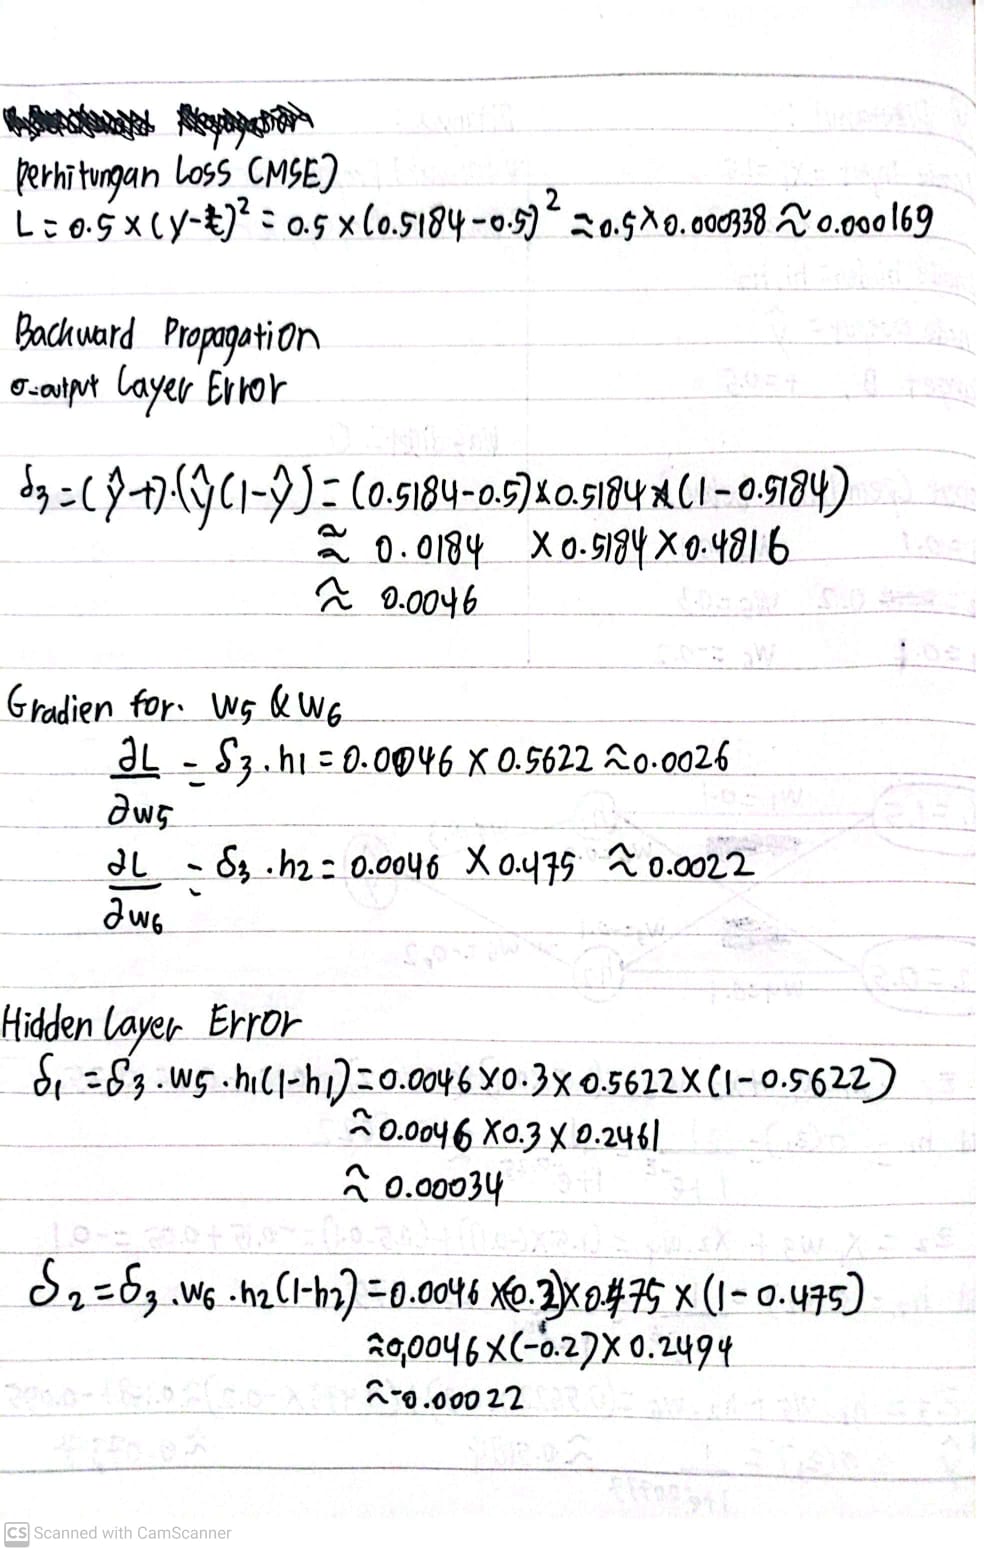 Perhitungan Loss (MSE)
L = 0.5 × (y - t)² = 0.5 × (0.5184 - 0.5)² ≈ 0.5 × 0.000338 ≈ 0.000169
Backward Propagation
σ-output Layer Error
δ3 = (ŷ - t).(ŷ(1-ŷ) = (0.5184-0.5) × 0.5184 × (1-0.5184)
≈ 0.0184 × 0.5184 × 0.4816
≈ 0.0046
Gradien for. W5 & W6
∂L/∂W5 = δ3 . h1 = 0.0046 × 0.5622 ≈ 0.0026
∂L/∂W6 = δ3 . h2 = 0.0046 × 0.475 ≈ 0.0022
Hidden Layer Error
δ1 = δ3 . W5 . h1(1-h1) = 0.0046 × 0.3 × 0.5622 × (1-0.5622)
≈ 0.0046 × 0.3 × 0.2461
≈ 0.00034
δ2 = δ3 . W6 . h2(1-h2) = 0.0046 × (0.2) × 0.475 × (1-0.475)
≈ 0,0046 × (-0.2) × 0.2494
≈ -0.00022
CS Scanned with CamScanner